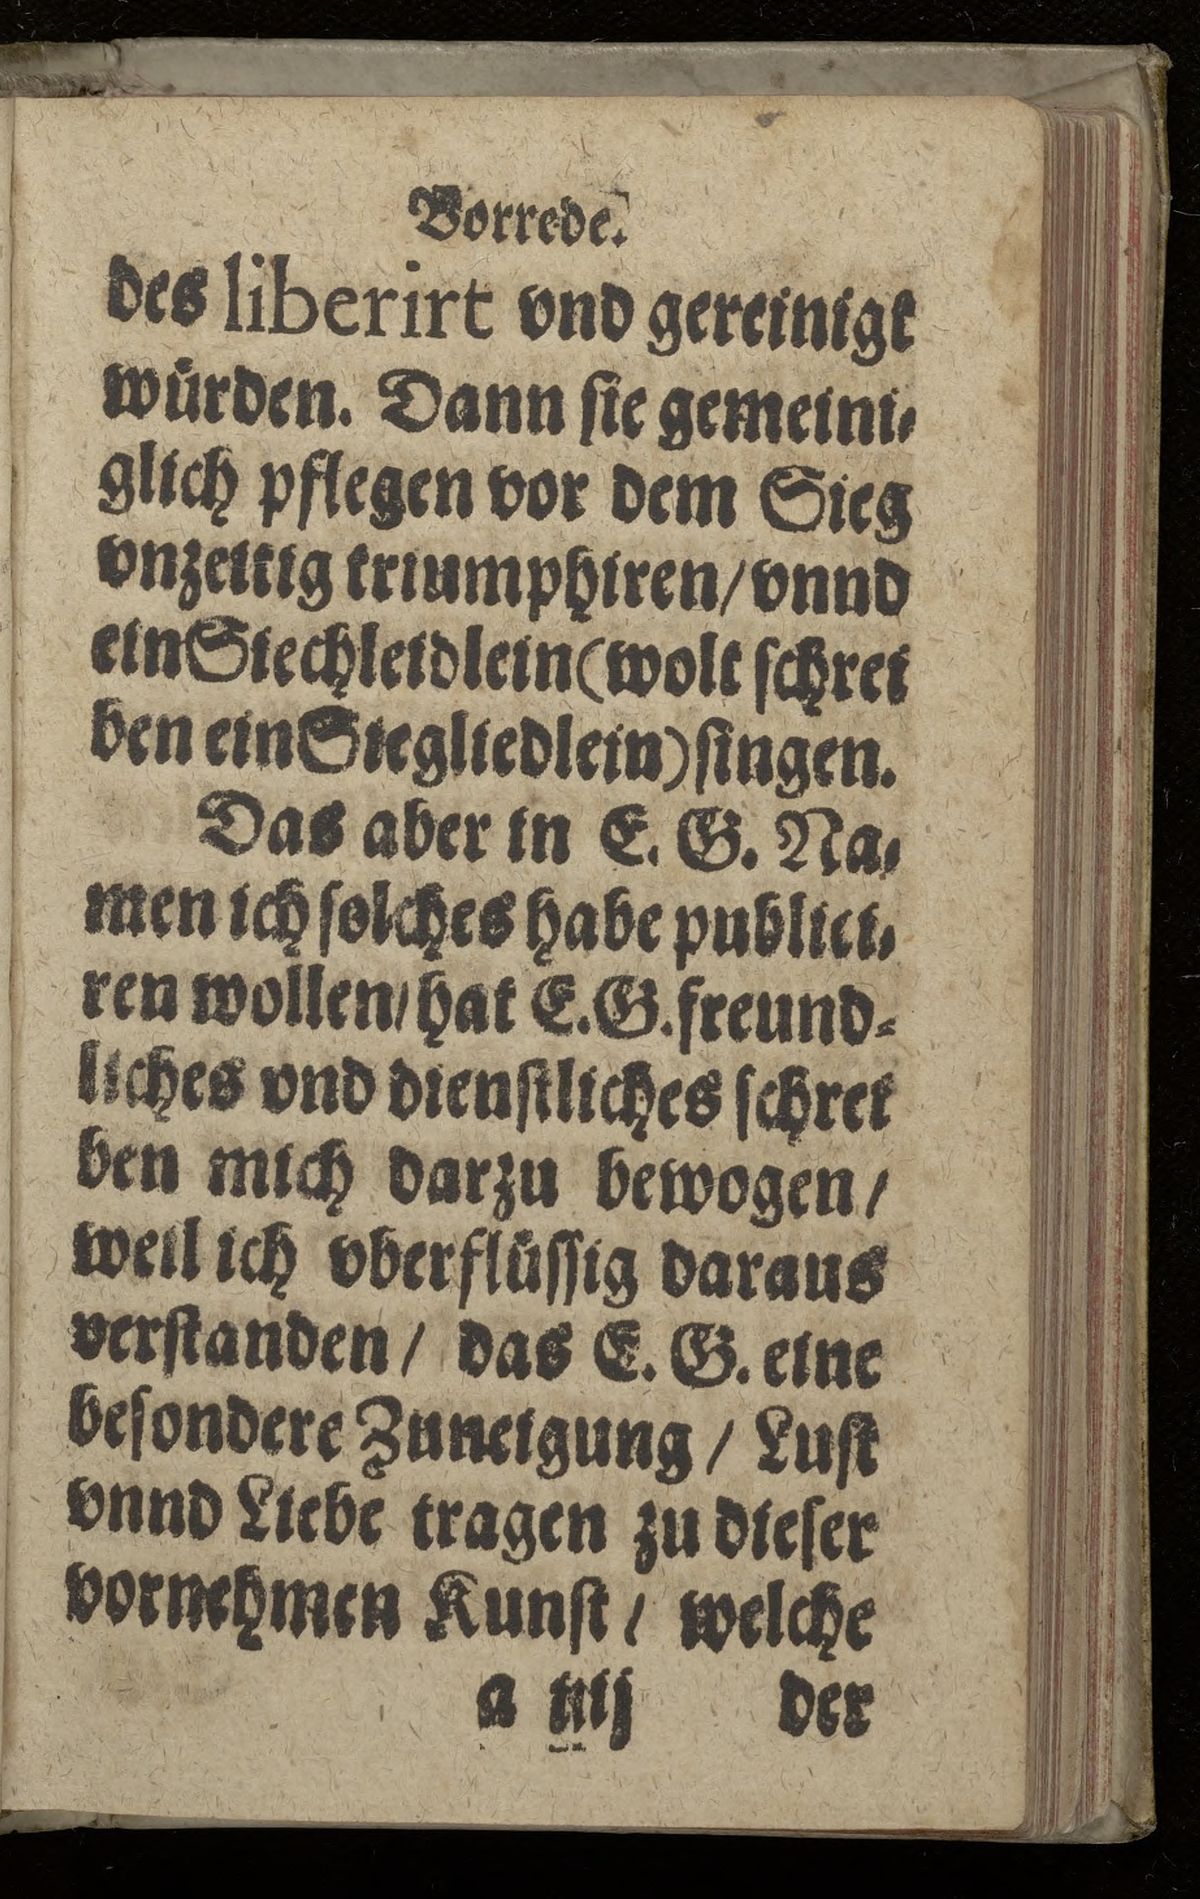 Vorrede.
des liberirt vnd gereinigt
würden. Dann ſie gemeini⸗
glich pflegen vor dem Sieg
vnzeitig triumphiren/ vnnd
ein Siechleidlein (wolt ſchrei
ben ein Siegliedlein) ſingen.
Das aber in E. G. Na⸗
men ich ſolches habe publici⸗
ren wollen/ hat E. G. freund⸗
liches vnd dienſtliches ſchrei
ben mich darzu bewogen/
weil ich vberflüſſig daraus
verſtanden/ das E. G. eine
beſondere Zuneigung/ Luſt
vnnd Liebe tragen zu dieſer
vornehmen Kunſt/ welche
a iiij der